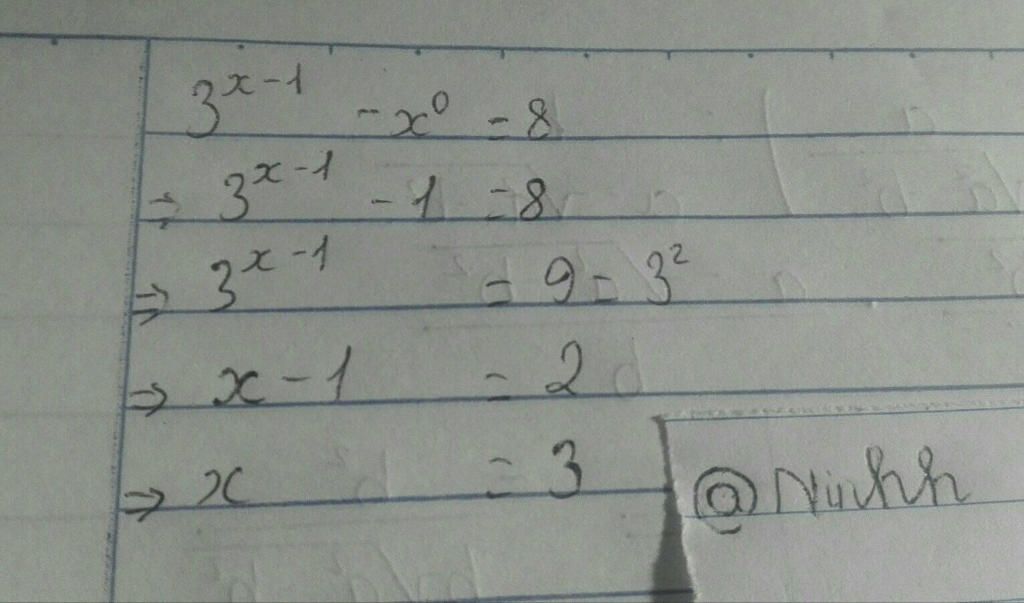 3^{x-1} - x^0 = 8
⇒ 3^{x-1} - 1 = 8
⇒ 3^{x-1} = 9 = 3^2
⇒ x - 1 = 2
⇒ x = 3